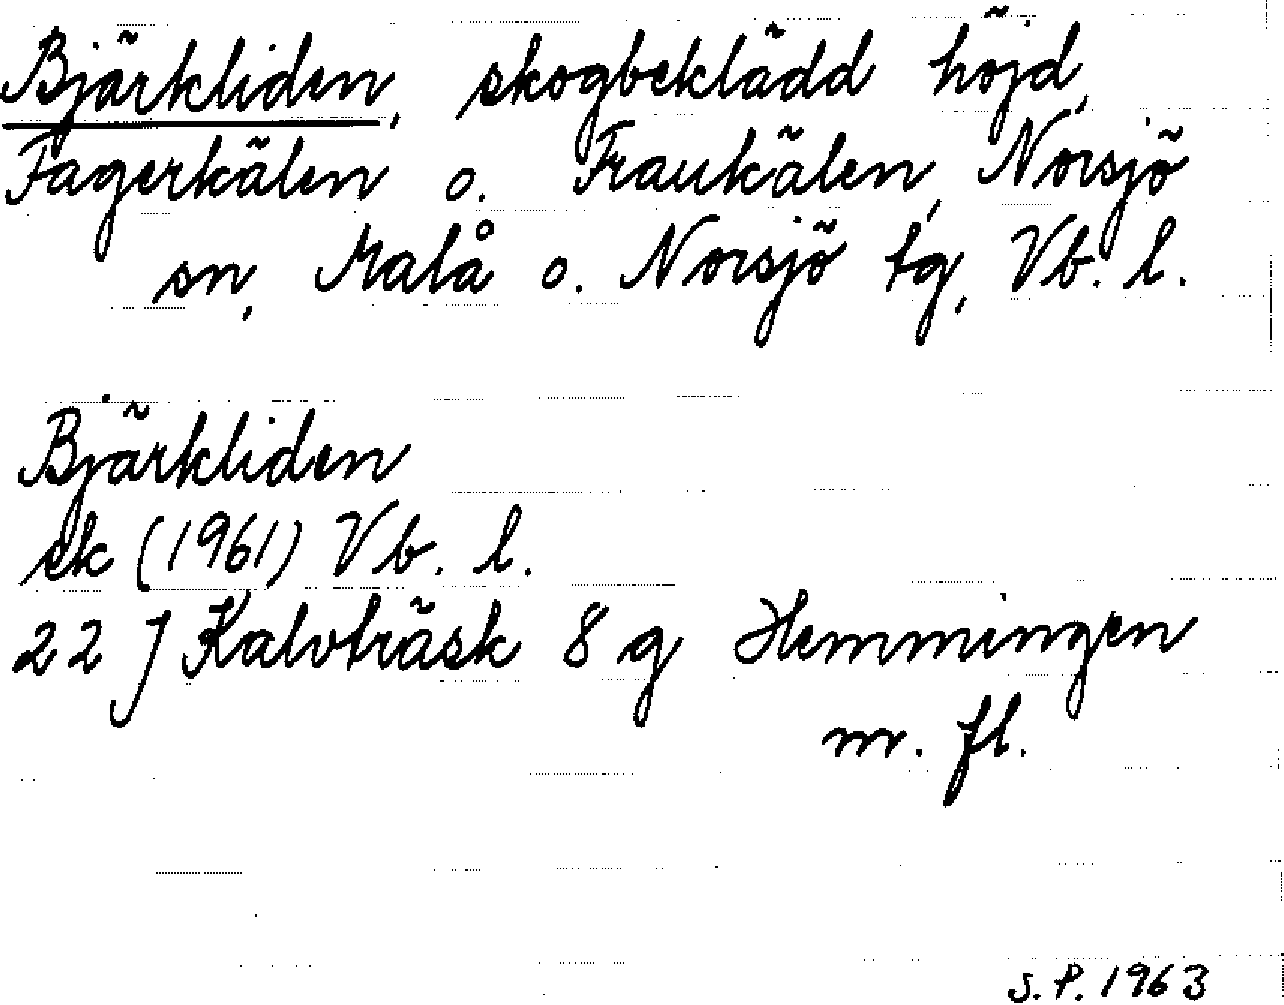 Bjärkliden, skogbeklädd höjd,
Fagerkälen o. Fraukälen, Norsjö
sn, Malå o. Norsjö tg, Vb. l.
Bjärkliden
ek (1961) Vb. l.
22 J Kalvträsk 8 g Hemmingen
m. fl.
S. P. 1963